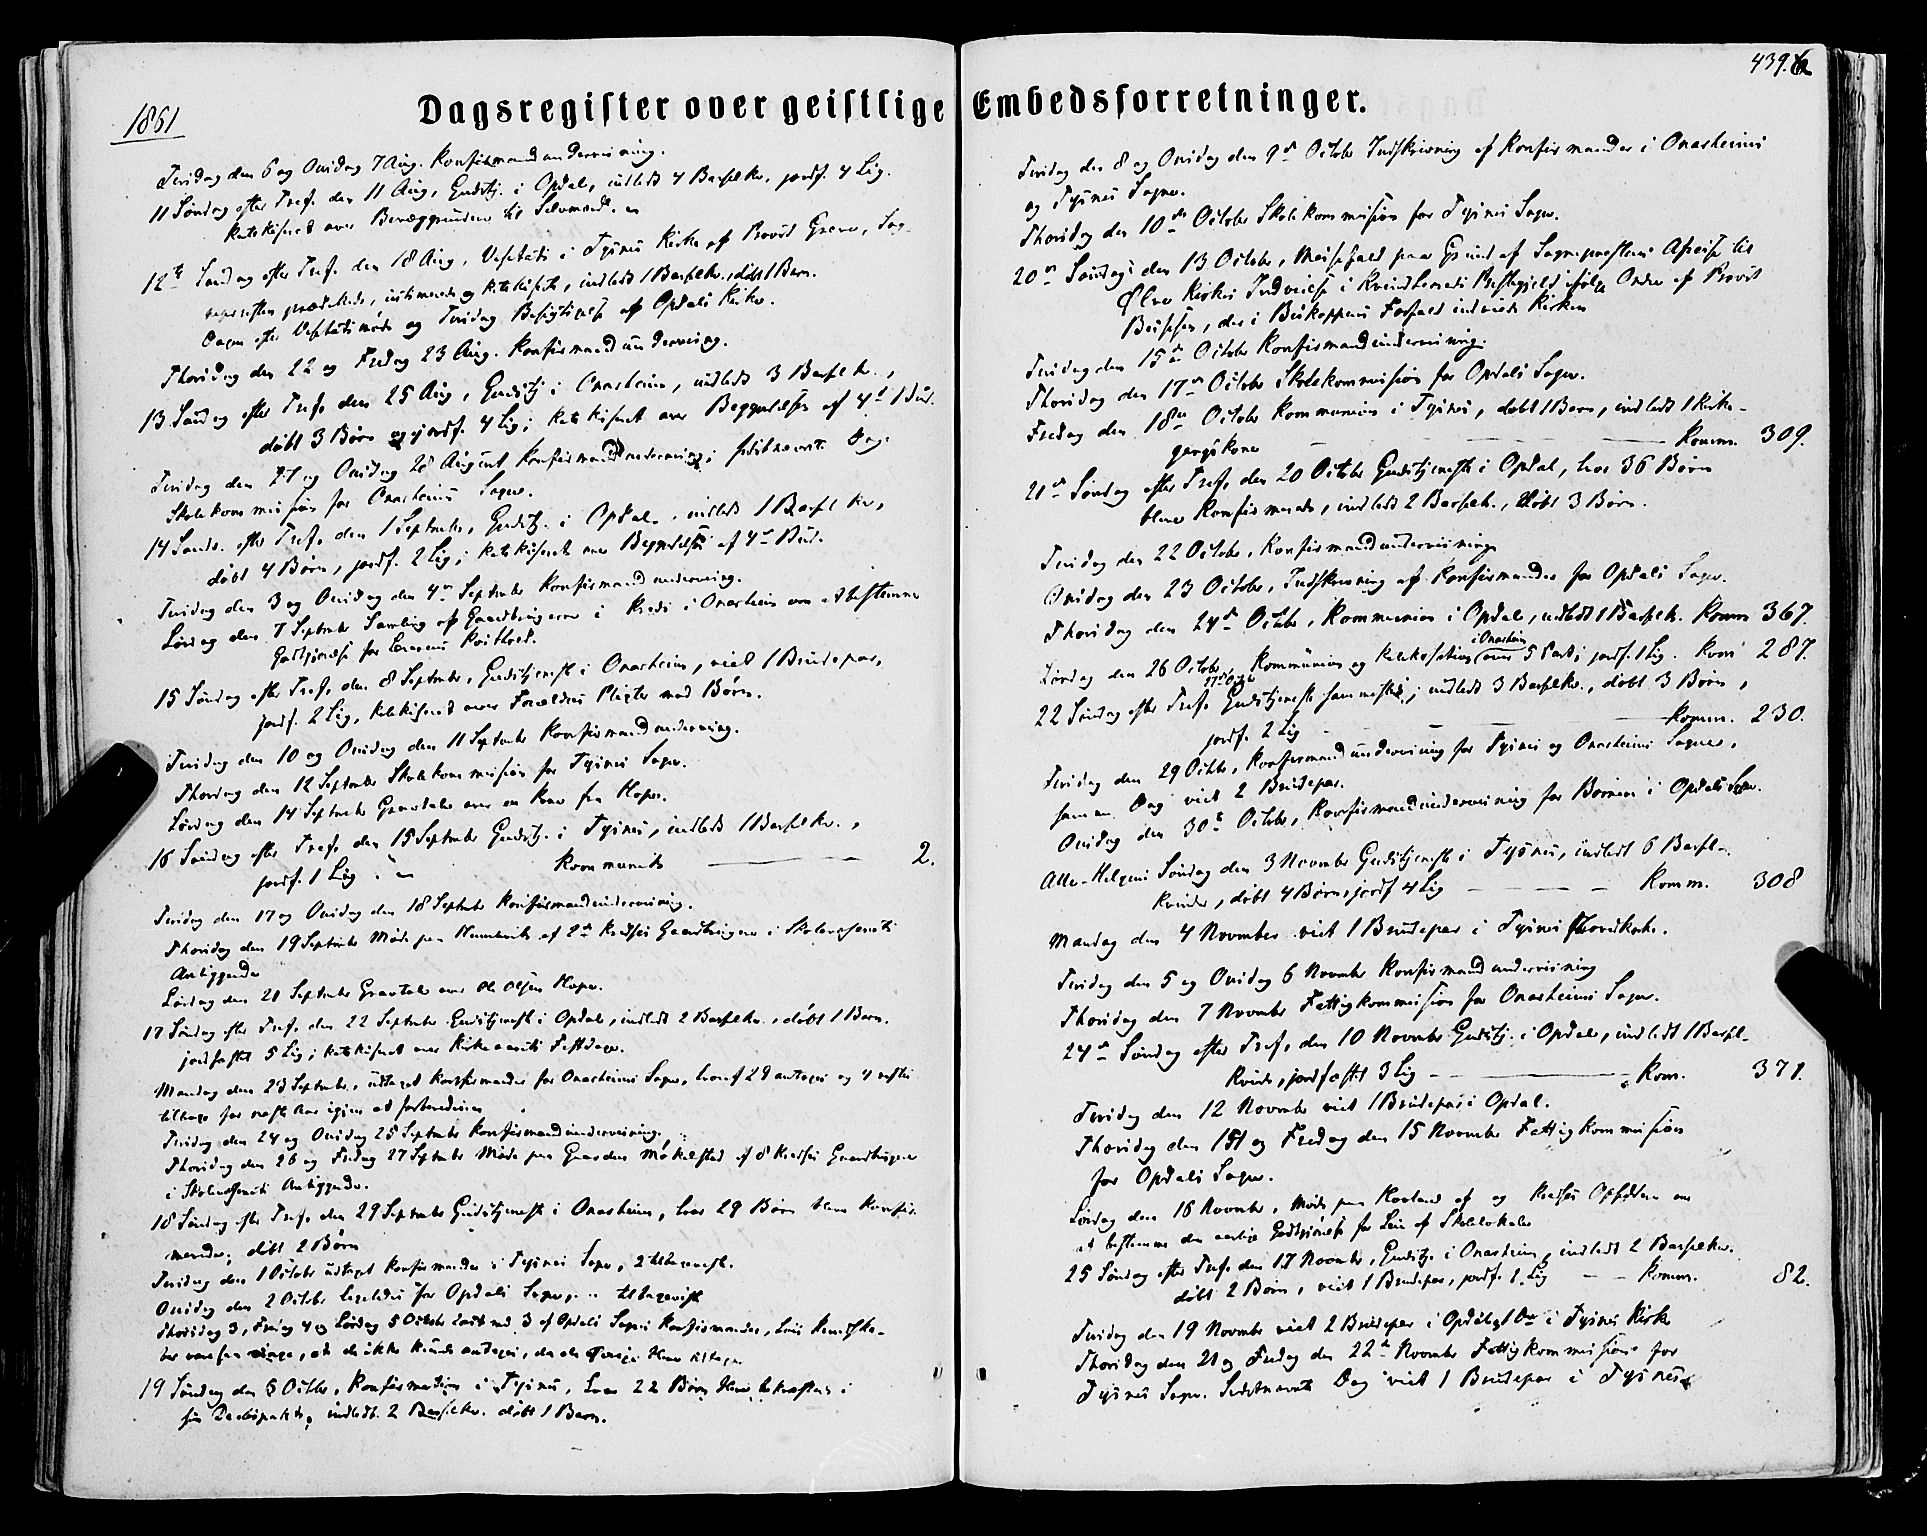 1861
Dagsregister over geistlige Embedsforretninger.
439.
Tirsdag den 6 og Onsdag 7 Aug. Konfirmandundervisning.
11 Søndag efter Tref. den 11 Aug, Gudstj. i Opdal, indledt 4 Barselkv. jordf. 4 Lig.
katekiseret over Bevæggrundene til Selvmord.
12te Søndag efter Tref. den 18 Aug, Visitats i Tysnes Kirke af Provst Greve, Sog-
nepresten prædikede, intimerede og katekiserte, indledt 1 Barselkv. døbt 1 Barn.
Dagen efter Visitatsmøde og Tirsdag Besigtigelse af Opdals Kirke.
Thorsdag den 22 og Fredag 23 Aug. Konfirmandundervisning.
13 Søndag efter Tref. den 25 Aug, Gudstj. i Onarheim, indledt 3 Barselkv.,
døbt 3 Børn og jordf. 4 Lig; katekiseret over Begyndelsen af 4de Bud.
Tirsdag den 27 og Onsdag 28 August Konfirmandundervisning; sidstnævnte Dag
Skolekommission for Onarheims Sogn.
14 Sønd. efter Tref. den 1 September, Gudstj. i Opdal, indledt 1 Barselkv,
døbt 4 Børn, jordf. 2 Lig; katekiseret over Begyndelsen af 4de Bud.
Tirsdag den 3 og Onsdag den 4de September Konfirmandundervisning.
Lørdag den 7 September Samling af Gaardbrugerne i Kreds i Onarheim om at bestemme
Godtgjørelse for Lærerens
15 Søndag efter Tref. den 8 September, Gudstjeneste i Onarheim, viet 1 Brudepar,
jordf. 2 Lig, katekiseret over Forældres Pligter mod Børn.
Tirsdag den 10 og Onsdag den 11 September Konfirmandundervisning.
Thorsdag den 12 September Skolekommission for Tysnes Sogn.
Lørdag den 14 September Gravtale over en Kone fra Hope.
16 Søndag efter Tref. den 15 September Gudstj. i Tysnes, indledt 1 Barselkv.,
jordf. 1 Lig. Kommunik 2.
Tirsdag den 17 og Onsdag den 18 September Konfirmandundervisning.
Thorsdag den 19 September Møde paa af 2den Kredses Gaardbrugere i Skolevæsenets
Anliggender
Lørdag den 21 September Gravtale over Ole Olsen Hope.
17 Søndag efter Tref. den 22 September Gudstjeneste i Opdal, indledt 2 Barselkv., døbt 1 Barn.
jordfæstet 5 Lig; katekiseret over Kirkeaarets Festdage.
Mandag den 23 September, udtaget Konfirmander for Onarheims Sogn, hvoraf 29 antages og 4 sættes
tilbage for næste Aar igjen at forberedes
Tirsdag den 24 og Onsdag 25 September Konfirmandundervisning.
Thorsdag den 26 og Fredag 27 September Møde paa Gaarden Møkelstad af 8 Kredses Gaardbrugere
i Skolevæsenets Anliggender.
18 Søndag efter Tref. den 29 September Gudstjeneste i Onarheim, hvor 29 Børn bleve Konfir-
merede; døbt 2 Børn
Tirsdag den 1 October udtaget Konfirmander i Tysnes Sogn, 2 tilbagesat.
Onsdag den 2 October ligeledes for Opdals Sogn, tilbagevist
Thorsdag 3, Fredag 4 og Lørdag 5 October 3 af Opdals Sogns Konfirmander, hvis Kundska-
ber vare saa ringe, at de ikke kunde antages, da de
19 Søndag den 6 Octbr. Konfirmation i Tysnes, hvor 22 Børn bekræftede i
sin Daabspakt; indledt 2 Barselkv. døbt 1 Barn.
Tirsdag den 8 og Onsdag den 9de October Indskrivning af Konfirmander i Onarheims
og Tysnes Sogne.
Thorsdag den 10de October Skolekommission for Tysnes Sogn.
20de Søndag den 13 October, Messefald paa Grund af Sognepræstens Afreise til
Ølve Kirkes Indvielse i Kvindherreds Præstegjeld ifølge Ordre af Provst
der i Biskoppens Forfald indviede Kirken
Tirsdag den 15de October Konfirmandundervisning.
Thorsdag den 17de October Skolekommission for Opdals Sogn.
Fredag den 18de October Kommunion i Tysnes, døbt 1 Barn, indledt 1 Kirke-
gangskone Komm. 309.
21de Søndag efter Tref. den 20 October Gudstjeneste i Opdal, hvor 36 Børn
bleve Konfirmerede, indledt 2 Barselk., døbt 3 Børn.
Tirsdag den 22 October, Konfirmandundervisning
Onsdag den 23 October, Indskrivning af Konfirmander for Opdals Sogn.
Thorsdag den 24de Octbr, Kommunion i Opdal, indledt 1 Barselk. Komm 367.
Lørdag den 26 October, Kommunion og Katekisation i Onarheim over 5 Part; jordf. 1 Lig. Kom 287.
22 Søndag efter Tref. 27 Octbr Gudstjeneste sammesteds; indledt 3 Barselkv., døbt 3 Børn,
jordf. 2 Lig Komm. 230.
Tirsdag den 29 Octbr, Konfirmandundervisning for Tysnes og Onarheims Sogne,
samme Dag viet 2 Brudepar.
Onsdag den 30te October, Konfirmandundervisning for Børnene i Opdals Sogn.
Alle-Helgens Søndag den 3 November Gudstjeneste i Tysnes, indledt 6 Barsel-
kvinder, døbt 4 Børn, jordf 4 Lig Komm. 308
Mandag den 4 November viet 1 Brudepar i Tysnes Hovedkirke.
Tirsdag den 5 og Onsdag 6 November Konfirmandundervisning
Thorsdag den 7 November Fattigkommission for Onarheims Sogn.
24de Søndag efter Tref. den 10 November Gudstj. i Opdal, indledt 1 Barsel-
kvinde, jordfæstet 3 Lig Kom. 371.
Tirsdag den 12 November viet 1 Brudepar i Opdal.
Thorsdag den 14 og Fredag den 15 November Fattigkommission
for Opdals Sogn.
Lørdag den 16 November, Møde paa af og Kredses Opsiddere om
at bestemme den aarlige Godtgjørelse for Leie af Skolelokale
25 Søndag efter Tref. den 17 November, Gudstj. i Onarheim, indledt 2 Barselkv.
døbt 2 Børn, viet 1 Brudepar, jordf. 1 Lig Komm. 82.
Tirsdag den 19 November viet 2 Brudepar i Opdal, 1 Do i Tysnes Kirke
Thorsdag den 21 og Fredag den 22de November Fattigkommission for
Tysnes Sogn. Sidstnævnte Dag viet 1 Brudepar i Tysnes